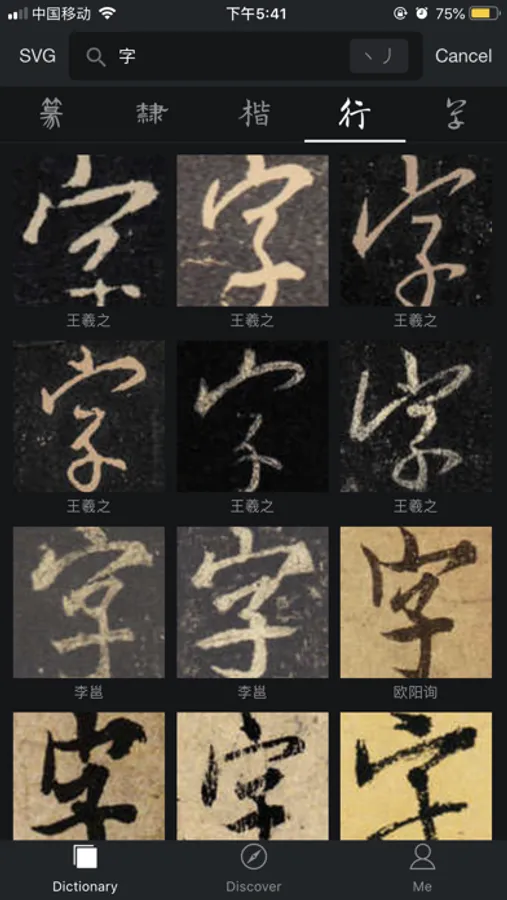 中国移动 下午5:41 75%
SVG 字 丶丿 Cancel
篆 隸 楷 行 草
字 字 字
王羲之 王羲之 王羲之
字 字 字
王羲之 王羲之 王羲之
字 字 字
李邕 李邕 欧阳询
字 字 字
Dictionary Discover Me